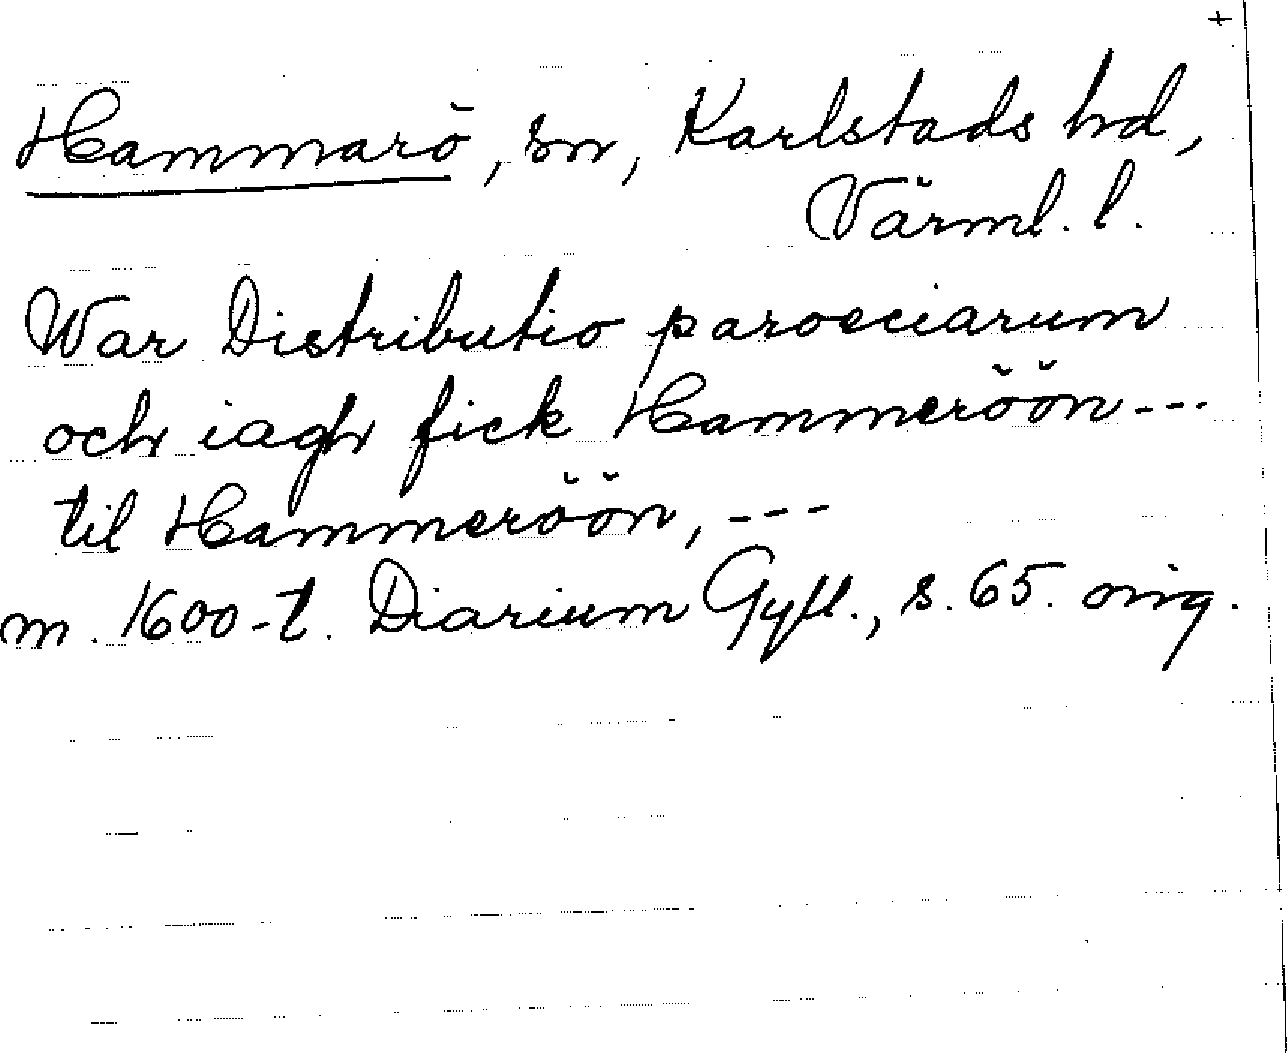 +
Hammarö, sn, Karlstads hd,
Värml. l.
War Distributio paroeciarum
och iagh fick Hammeröön ---
til Hammeröön, ---
m. 1600-t. Diarium Gyll., s. 65. orig.